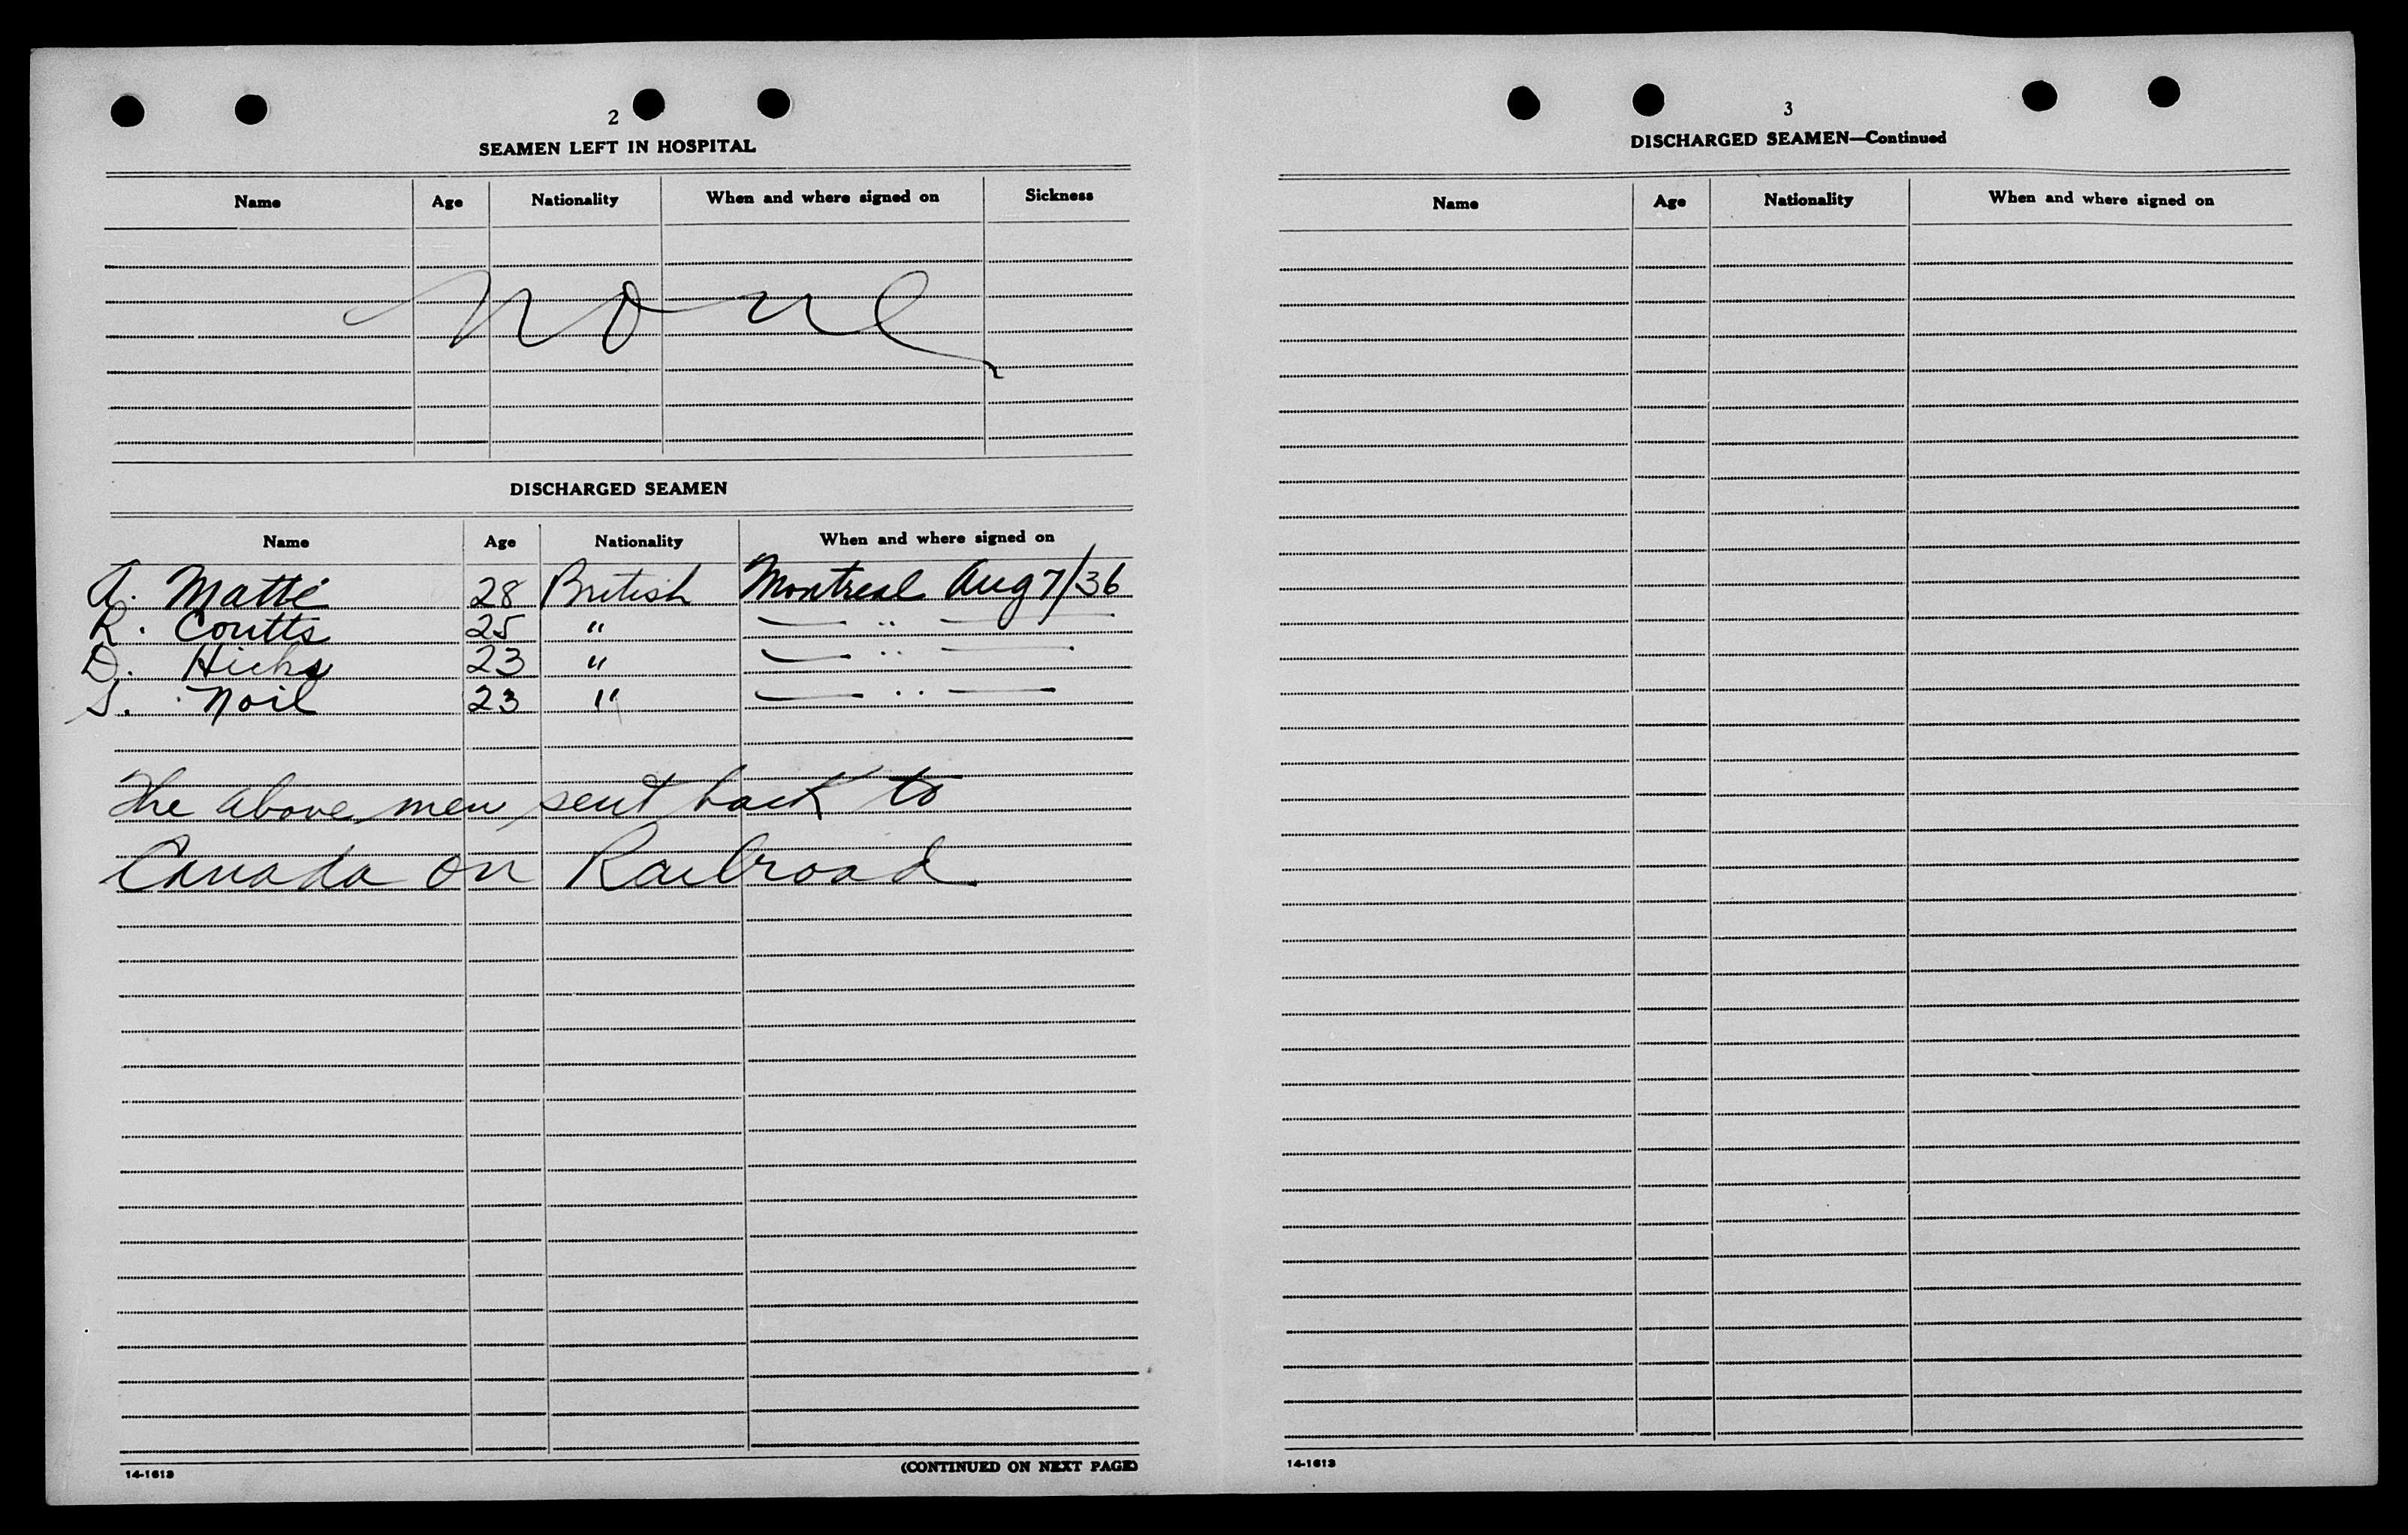 2
SEAMEN LEFT IN HOSPITAL
Name Age Nationality When and where signed on Sickness
None
DISCHARGED SEAMEN
Name Age Nationality When and where signed on
A. Matte 28 British Montreal Aug 7/36
R. Coutts 25 " — " —
D. Hicks 23 " — " —
S. Noil 23 " — " —
The above men sent back to
Canada on Railroad
14-1613 (CONTINUED ON NEXT PAGE)
3
DISCHARGED SEAMEN—Continued
Name Age Nationality When and where signed on
14-1613